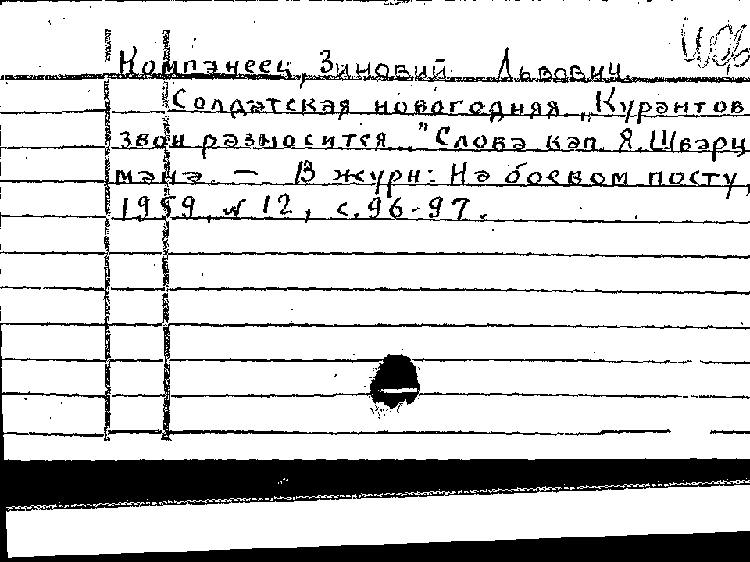 Компанеец, Зиновий Львович
Солдатская новогодняя „Курантов
звон разносится..." Слова кап. Я. Шварц
мана. — В журн: На боевом посту,
1959, № 12, с. 96-97.